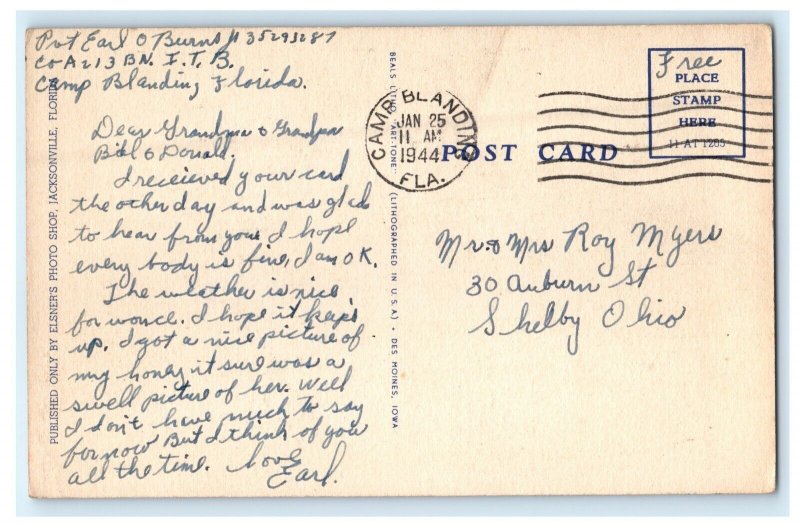 Pvt Earl O Burns # 35293287
Co A 213 BN. I. T. B.
Camp Blanding Florida.
Dear Grandma & Grandpa
Bill & Donald.
I receieved your card
the other day and was glad
to hear from you. I hope
every body is fine, I am OK.
The weather is nice
for wonce. I hope it keeps
up. I got a nice picture of
my honey it sure was a
swell picture of her. Well
I don't have much to say
for now But I think of you
all the time. Love
Earl.
PUBLISHED ONLY BY ELSNER'S PHOTO SHOP, JACKSONVILLE, FLORIDA
BEALS LITHO "ART-TONE" (LITHOGRAPHED IN U.S.A) • DES MOINES, IOWA
CAMP BLANDING
JAN 25
11 AM
1944
FLA.
POST CARD
Free
PLACE
STAMP
HERE
11 AT 1205
Mr & Mrs Roy Myers
30 Auburn St
Shelby Ohio